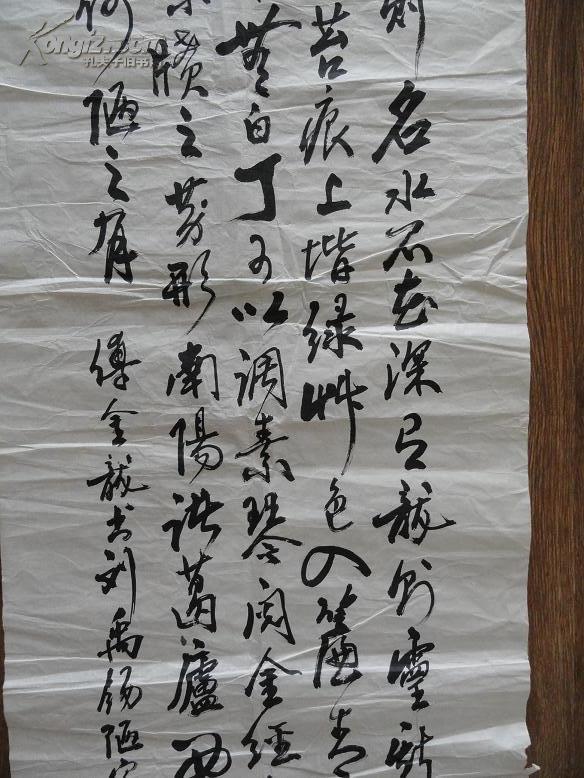 则名水不在深有龙则靈斯
苔痕上堦绿艸色入簾青
無白丁可以调素琴阅金经
牍之劳形南陽諸葛廬西
何陋之有
傅金龙书刘禹锡陋室
Kongfz.com
孔夫子旧书网